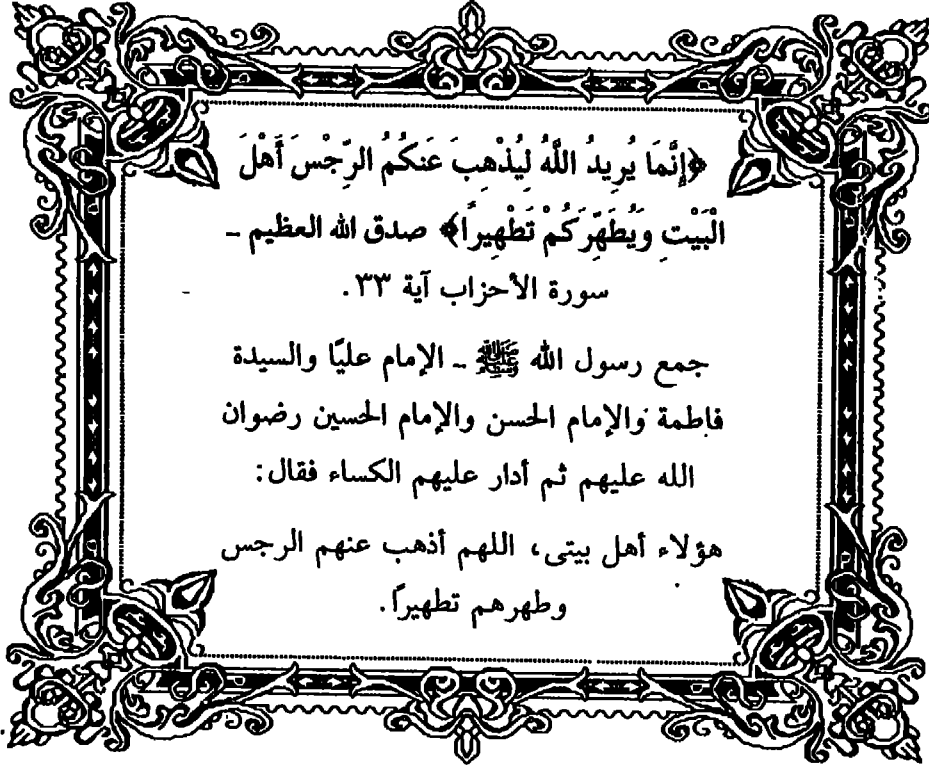 ﴿إِنَّمَا يُرِيدُ اللَّهُ لِيُذْهِبَ عَنكُمُ الرِّجْسَ أَهْلَ
الْبَيْتِ وَيُطَهِّرَكُمْ تَطْهِيرًا﴾ صدق الله العظيم ـ
سورة الأحزاب آية ٣٣.
جمع رسول الله ﷺ ـ الإمام عليًا والسيدة
فاطمة والإمام الحسن والإمام الحسين رضوان
الله عليهم ثم أدار عليهم الكساء فقال:
هؤلاء أهل بيتى، اللهم أذهب عنهم الرجس
وطهرهم تطهيرًا.